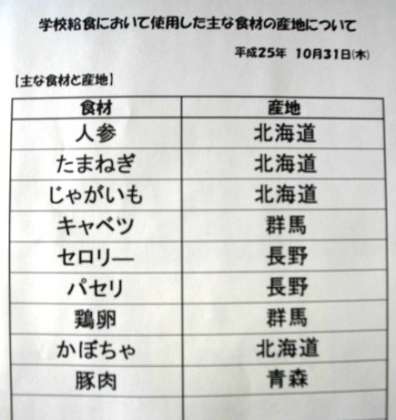 学校給食において使用した主な食材の産地について
平成25年 10月31日(木)
【主な食材と産地】
食材 産地
人参 北海道
たまねぎ 北海道
じゃがいも 北海道
キャベツ 群馬
セロリ― 長野
パセリ 長野
鶏卵 群馬
かぼちゃ 北海道
豚肉 青森